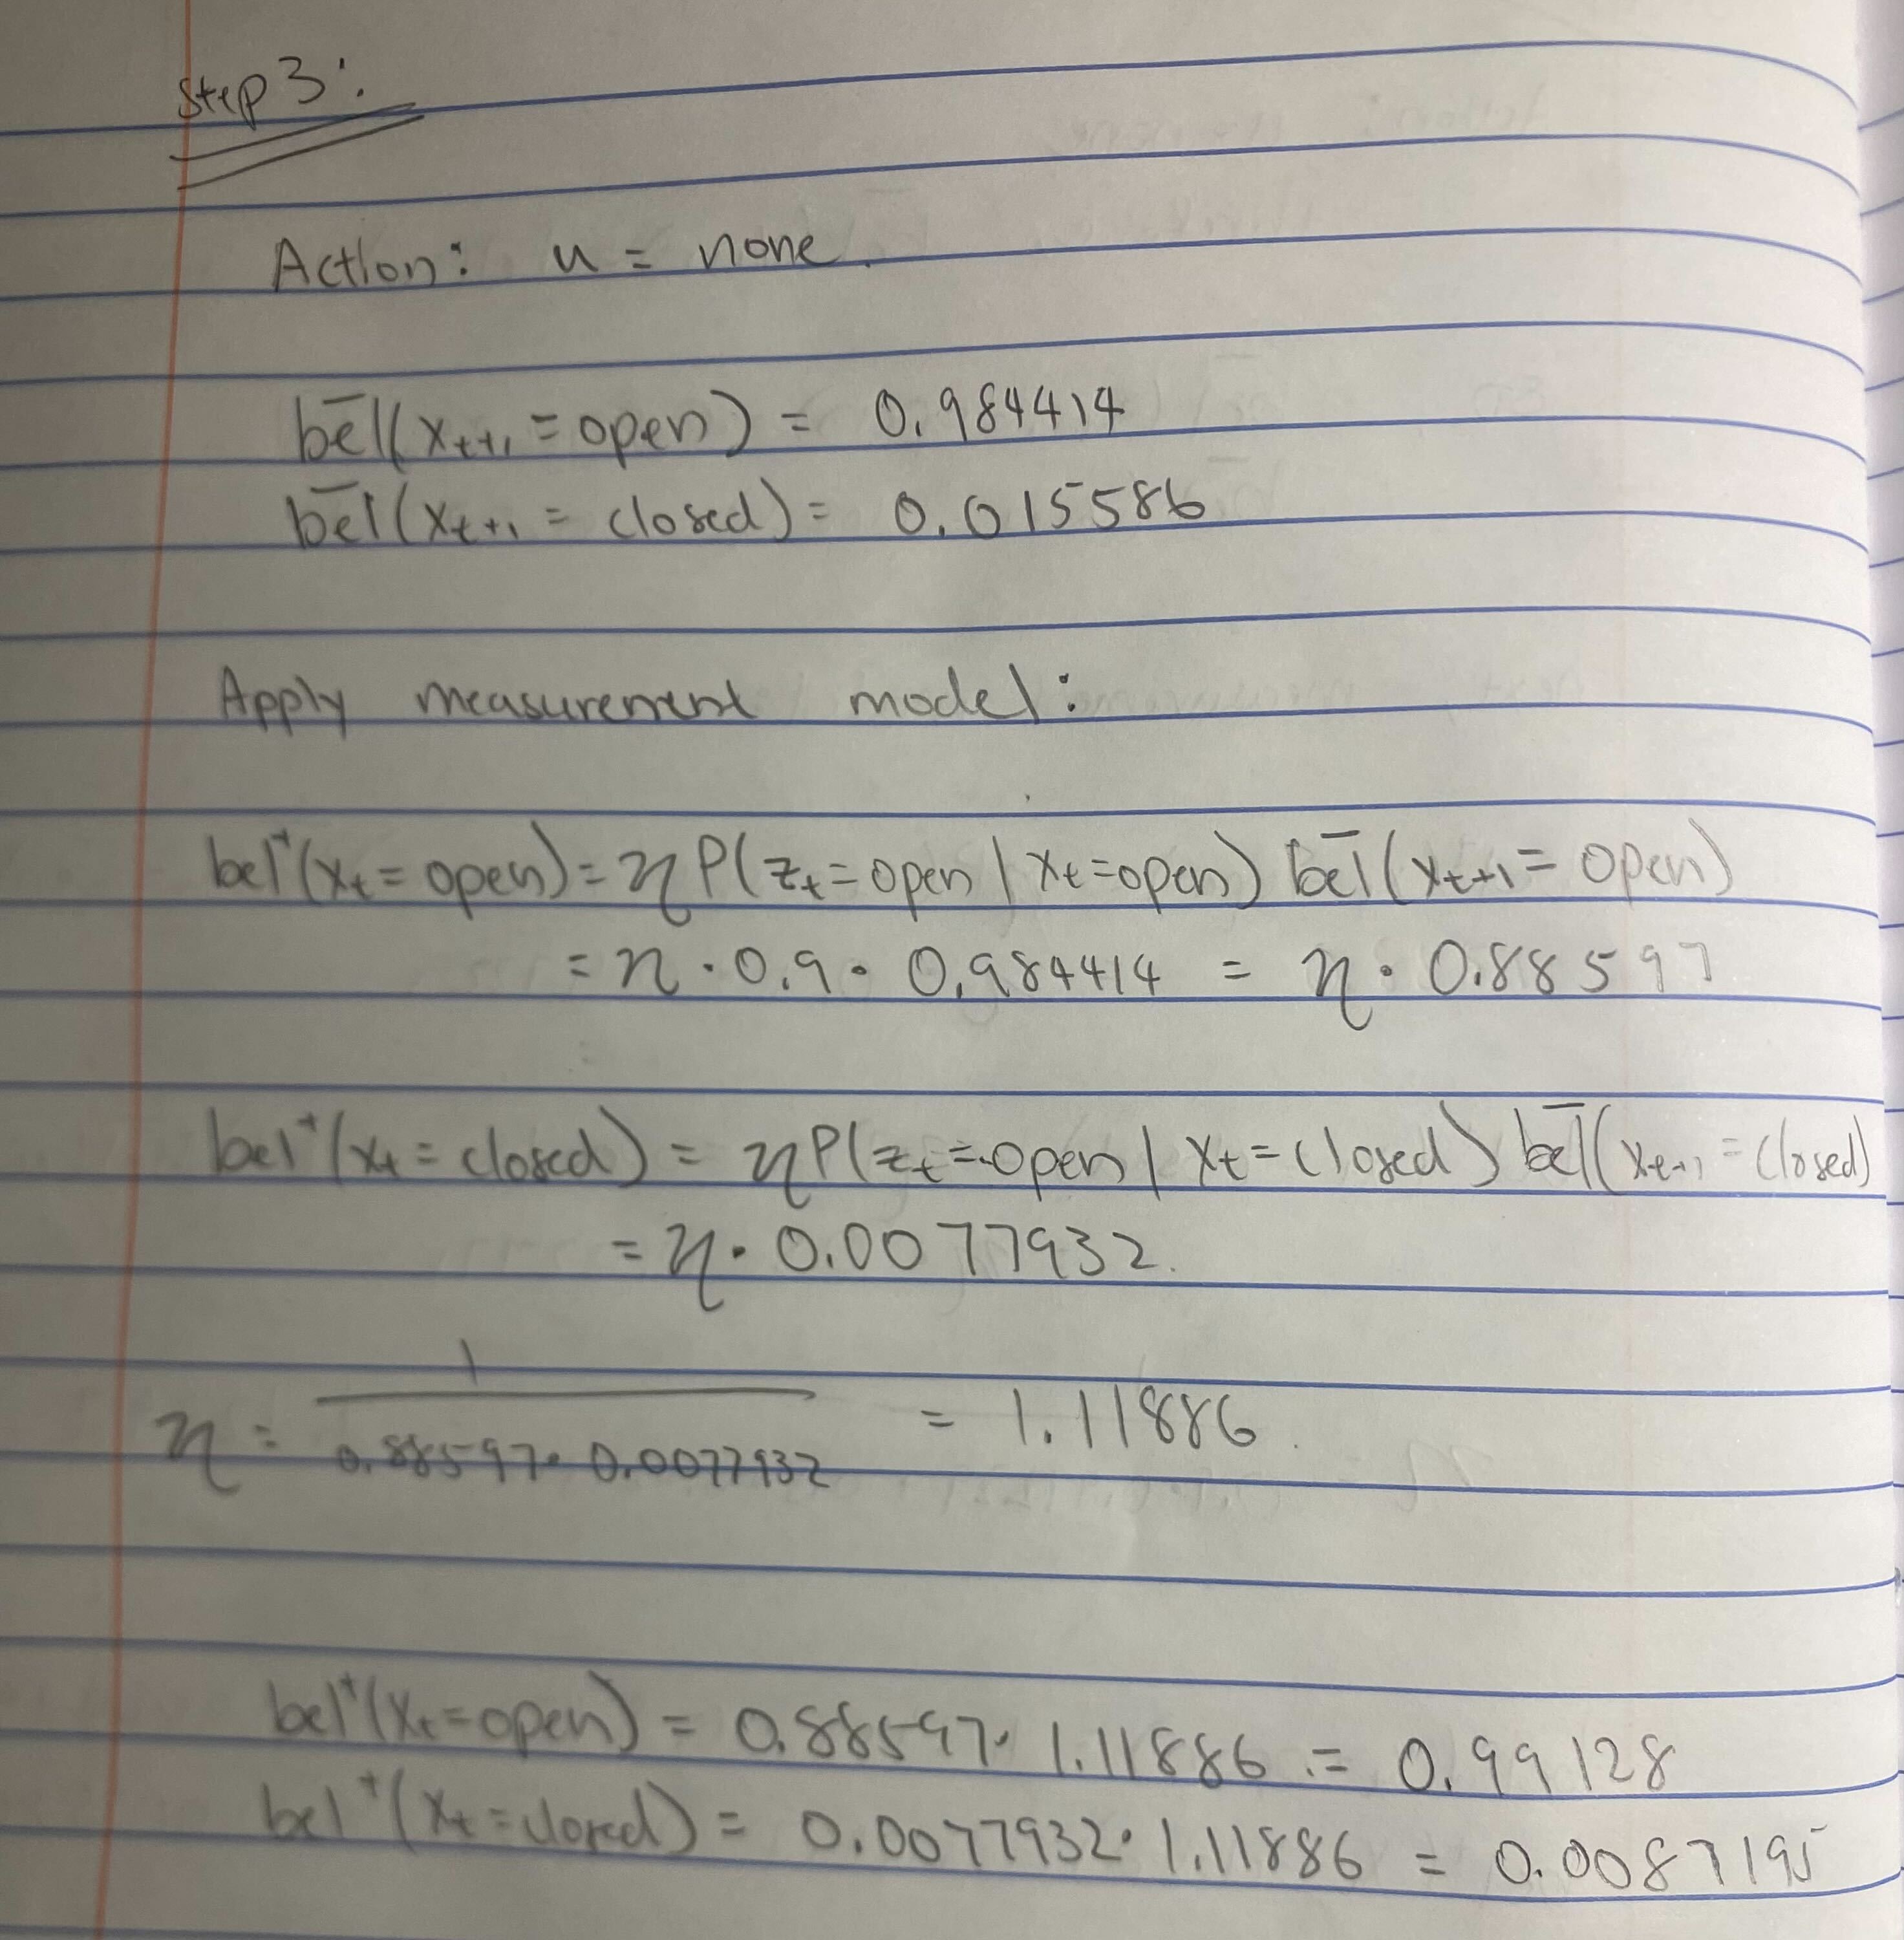 Step 3:
Action: u = none.
b̅e̅l̅(x_{t+1} = open) = 0.984414
b̅e̅l̅(x_{t+1} = closed) = 0.015586
Apply measurement model:
bel⁺(x_t = open) = η P(z_t = open | x_t = open) b̅e̅l̅(x_{t+1} = open)
= η · 0.9 · 0.984414 = η · 0.88597
bel⁺(x_t = closed) = η P(z_t = open | x_t = closed) b̅e̅l̅(x_{t+1} = closed)
= η · 0.0077932.
1
η = ——— = 1.11886.
0.88597 · 0.0077932
bel⁺(x_t = open) = 0.88597 · 1.11886 = 0.99128
bel⁺(x_t = closed) = 0.0077932 · 1.11886 = 0.0087195